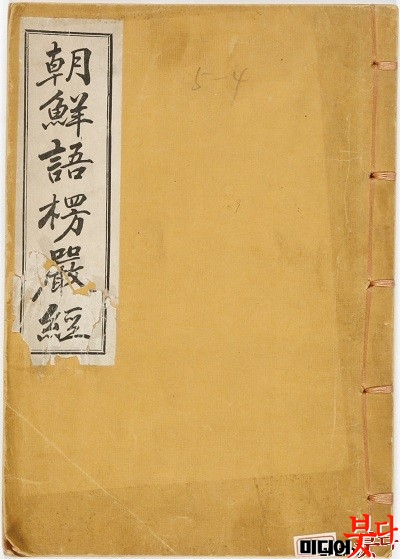 朝鮮語楞嚴經
5-4
미디어붓다